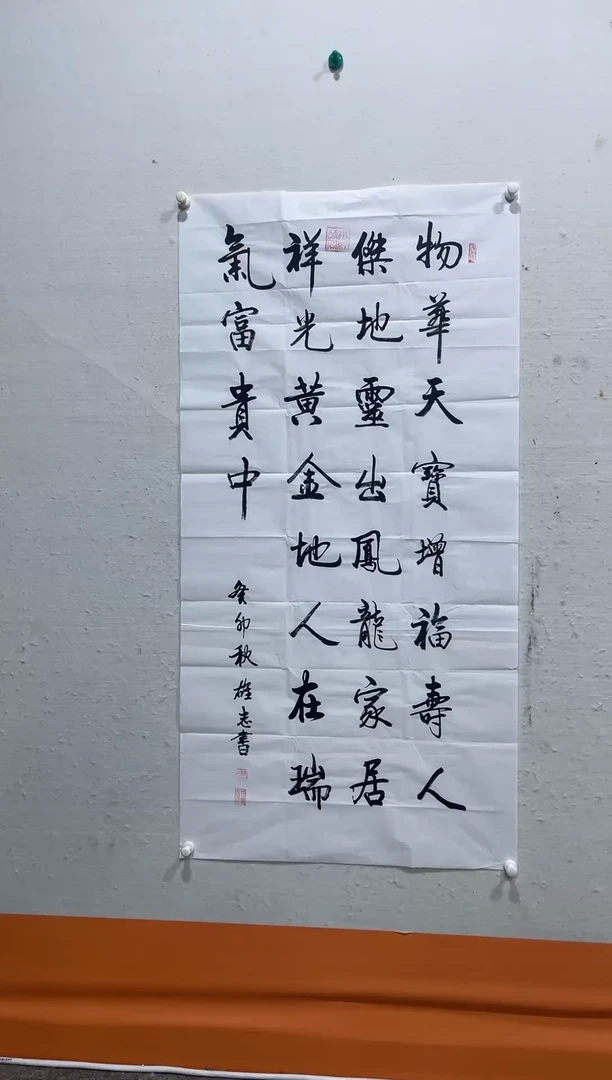 物華天寶增福壽人
傑地靈出鳳龍家居
祥光黃金地人在瑞
氣富貴中
癸卯秋雄志書